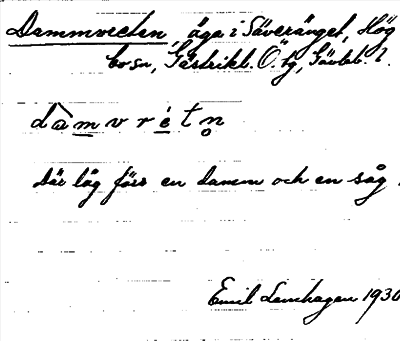 Dammvreten, äga i Säveränget, Hög
bo sn, Gästrikl. Ö. tg, Gävleb. l.
dàmvrétn̥
Där låg förr en damm och en såg.
Emil Lenhagen 1930